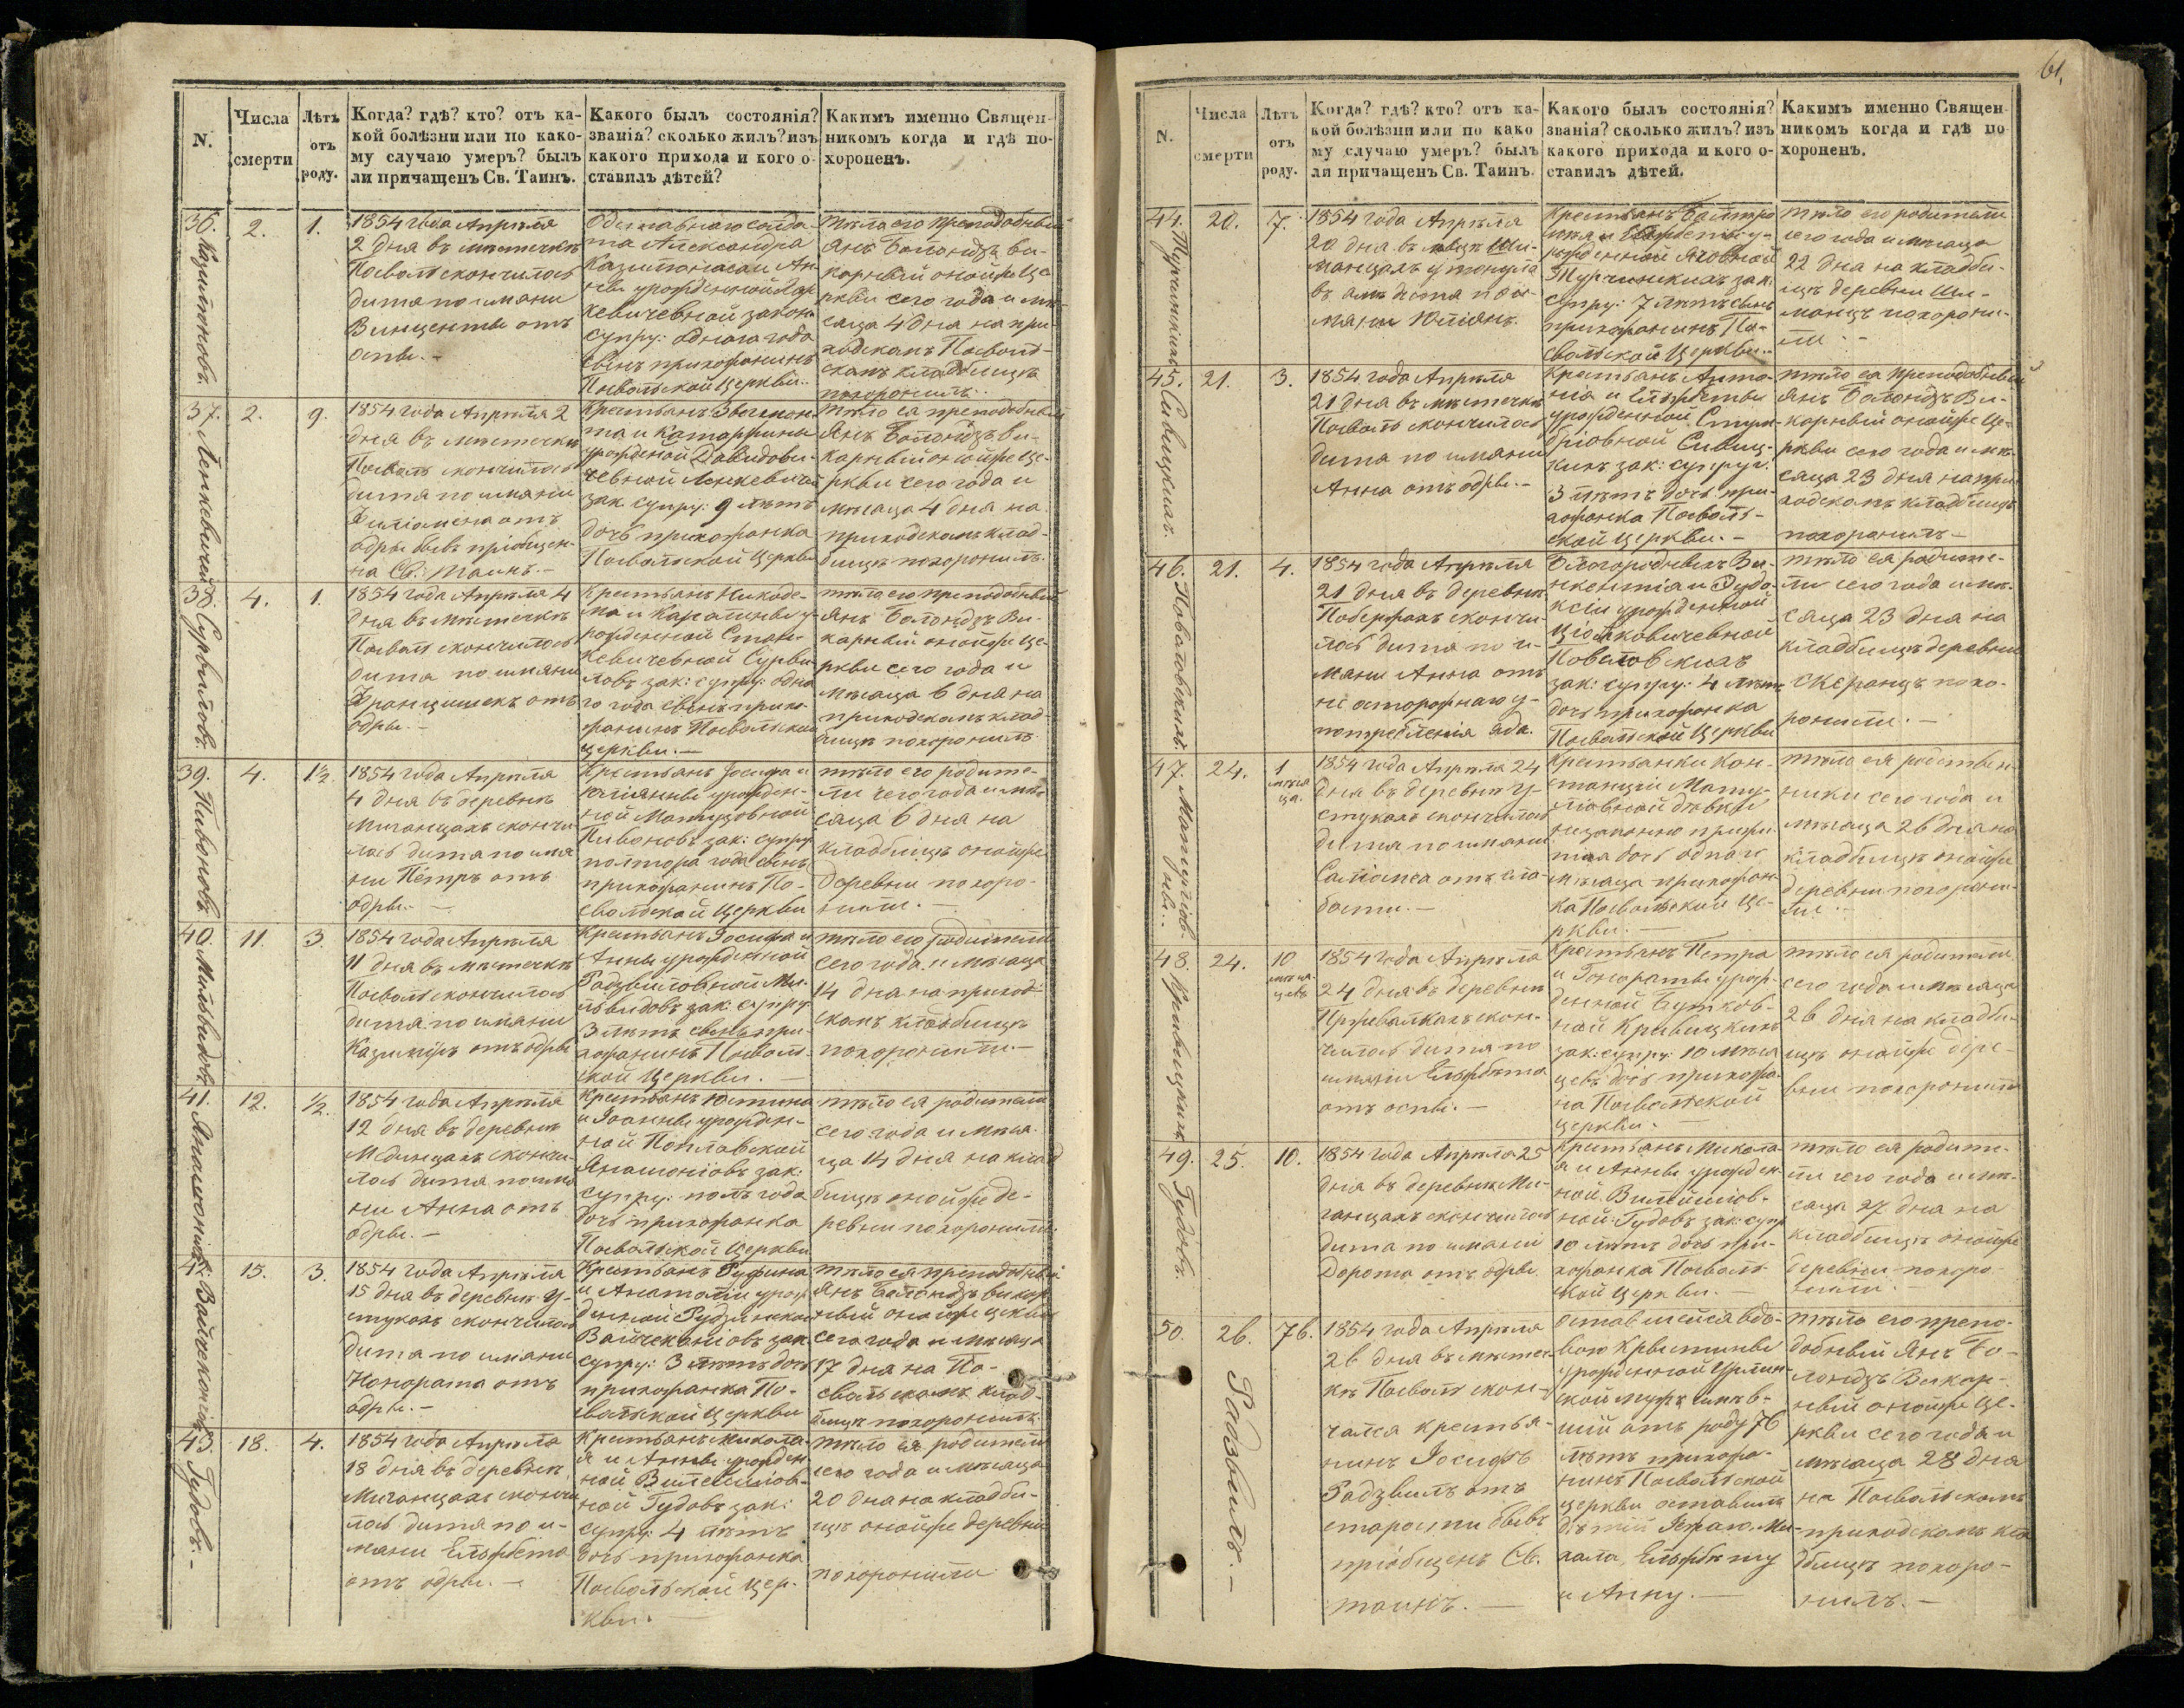 N.
Числа
смерти
Лѣтъ
отъ
роду.
Когда? гдѣ? кто? отъ ка-
кой болѣзни или по како-
му случаю умеръ? былъ
ли причащенъ Св. Таинъ.
Какого былъ состоянія?
званія? сколько жилъ? изъ
какого прихода и кого о-
ставилъ дѣтей?
Какимъ именно Священ-
никомъ когда и гдѣ по-
хороненъ.
36.
2.
1.
1854 года Апрѣля
2 дня въ мѣстечкѣ
Посволѣ скончилось
дитя по имяни
Винцентый отъ
оспы. -
та Александра
супру: одного года
сынъ прихожанинъ
Посвольской Церкви.
Тѣло его преподобный
Янъ Болондзь ви-
карный онойже Це
ркви сего года и мѣ-
сяца 4 дня на при-
ходскомъ Посволь-
скомъ кладбищѣ
похоронилъ.
37. Ленкевичей
2.
9.
1854 года Апрѣля 2
дня въ мѣстечкѣ
Посволѣ скончилось
дитя по имяни
Филомена отъ
одры бывъ пріобщен-
на Св: Таинъ. -
Крестьянъ
та и Катаржины
урожденной Давидови-
чевной Ленкевичей
зак: супру: 9 лѣтъ
дочь прихожанка
Посвольской Церкви
Тѣло ея преподобный
Янъ Болондзь Ви-
карный онойже Це-
ркви сего года и
мѣсяца 4 дня на
приходскомъ клад-
бищѣ похоронилъ.
38. Сурвиловъ.
4.
1.
1854 года Апрѣля 4
дня въ мѣстечкѣ
Посволѣ скончилось
дитя по имяни
Францишекъ отъ
одры. -
Крестьянъ Никоде-
ма и Каралины у-
рожденной Стан-
кевичевной Сурви-
ловъ зак: супру: одно
го года сынъ прихо-
жанинъ Посвольской
церкви. —
Тѣло его преподобный
Янъ Болондзь Ви-
карный онойже Це-
ркви сего года и
мѣсяца 6 дня на
приходскомъ клад-
бищѣ похоронилъ
39. Пивоновъ
4.
1½.
1854 года Апрѣля
4 дня въ деревнѣ
Мичанцахъ скончи-
лось дитя по имя
ни Петръ отъ
одры. —
Крестьянъ Іосифа и
Юліянны урожден-
ной Матузовной
Пивоновъ зак: супру
полтора года сынъ
прихожанинъ По-
свольской Церкви
тѣло его родите-
ли сего года и мѣ-
сяца 6 дня на
кладбищѣ онойже
деревни похоро-
нили. —
40. Мильвидовъ
11.
3.
1854 года Апрѣля
11 дня въ мѣстечкѣ
Посволѣ скончилось
дитя по имяни
Казимиръ отъ одры
Крестьянъ Іосифа и
Анны урожденной
Радзвиловной Ми-
львидовъ зак: супру
3 лѣтъ сынъ при-
хожанинъ Посволь-
ской Церкви. —
тѣло его родители
сего года и мѣсяца
14 дня на приход-
скомъ кладбищѣ
похоронили. —
41.
12.
½.
1854 года Апрѣля
12 дня въ деревнѣ
Мединцахъ скончи
лось дитя по имя
ни Анна отъ
одры. -
Крестьянъ Юстина
и Іоанны урожден-
ной Поплавской
зак:
супру: полъ года
дочь прихожанка
Посвольской Церкви
тѣло ея родители
сего года и мѣся-
ца 14 дня на клад
бищѣ онойже де-
ревни похоронили.
42.
15.
3.
1854 года Апрѣля
15 дня въ деревнѣ У-
стукахъ скончилось
дитя по имяни
Нонората отъ
одры. -
Крестьянъ Руфина
и Анатоліи урож
денной Рудзинской
зак
супру: 3 лѣтъ дочь
прихожанка По-
свольской Церкви
тѣло ея преподобный
Янъ Болондзь викар
ный онойже церкви
сего года и мѣсяца
17 дня на По-
свольскомъ клад-
бищѣ похоронилъ.
43. Гудовъ. -
18.
4.
1854 года Апрѣля
18 дня въ деревнѣ
Мичанцахъ скончи
лось дитя по и-
мяни Ельжбета
отъ одры. -
Крестьянъ Микола-
я и Анны урожден
ной Вилейшіов-
ной Гудовъ зак:
супру: 4 лѣтъ
дочь прихожанка
Посвольской Цер-
кви. —
тѣло ея родители
сего года и мѣсяца
20 дня на кладби-
щѣ онойже деревни
похоронили
61.
N.
Числа
смерти
Лѣтъ
отъ
роду.
Когда? гдѣ? кто? отъ ка-
кой болѣзни или по како
му случаю умеръ? былъ
ли причащенъ Св. Таинъ.
Какого былъ состоянія?
званія? сколько жилъ? изъ
какого прихода и кого о-
ставилъ дѣтей.
Какимъ именно Священ-
никомъ когда и гдѣ по
хороненъ.
44. Турчинскихъ
20.
7.
1854 года Апрѣля
20 дня въ
утонула
въ дитя по и-
мяни Юліянъ.
Крестьянъ Балтро
мѣя и Ельжбеты у-
рожденной
Турчинскихъ зак:
супру: 7 лѣтъ сынъ
прихожанинъ По-
свольской Церкви.
тѣло его родители
сего года и мѣсяца
22 дня на кладби-
щѣ деревни Ши-
манцъ похорони-
ли. -
45. Сивицкихъ.
21.
3.
1854 года Апрѣля
21 дня въ мѣстечкѣ
Посволѣ скончилось
дитя по имяни
Анна отъ одры. -
Крестьянъ Анто-
нія и Ельжбеты
урожденной
Сивиц-
кихъ зак: супруг.
3 лѣтъ дочь при-
хожанка Посволь-
ской Церкви. -
тѣло ея преподобный
Янъ Болондзь Ви-
карный онойже Це-
ркви сего года и мѣ-
сяца 23 дня на при
ходскомъ кладбищѣ
похоронилъ —
46.
21.
4.
1854 года Апрѣля
21 дня въ деревнѣ
скончи-
лось дитя по и-
мяни Анна отъ
не осторожнаго у-
потребленія яда.
Благородныхъ Ви-
нкентія и
урожденной
зак: супру: 4 лѣтъ
дочь прихожанка
Посвольской Церкви
тѣло ея родите-
ли сего года и мѣ-
сяца 23 дня на
кладбищѣ деревни
похо-
ронили. —
47.
24.
1
мѣся
ца.
1854 года Апрѣля 24
дня въ деревнѣ У-
стукахъ скончилось
дитя по имяни
Саломея отъ сла-
бости. —
Крестьянки Кон-
станціи
дѣвки
незаконно прижи-
тая дочь одного
мѣсяца прихожан
ка Посвольской Це-
ркви. —
тѣло ея родствен
ники сего года и
мѣсяца 26 дня на
кладбищѣ онойже
деревни похорони-
ли. —
48. Кривицкихъ
24.
10
мѣся
цевъ
1854 года Апрѣля
24 дня въ деревнѣ
скон-
чилось дитя по
имяни Ельжбета
отъ оспы. —
Крестьянъ Петра
и Гонораты урож-
денной Бутков-
ной Кривицкихъ
зак: супру: 10 мѣся
цевъ дочь прихожа-
на Посвольской
Церкви. —
тѣло ея родители
сего года и мѣсяца
26 дня на кладби-
щѣ онойже дере-
вни похоронили
49. Гудовъ.
25.
10.
1854 года Апрѣля 25
дня въ деревнѣ Ми-
чанцахъ скончилось
дитя по имяни
Дорота отъ одры
Крестьянъ Микола-
я и Анны урожден-
ной Вилейшіов-
ной Гудовъ зак: супр
10 лѣтъ дочь при-
хожанка Посволь
ской Церкви. —
тѣло ея родите-
ли сего года и мѣ-
сяца 27 дня на
кладбищѣ онойже
деревни похоро-
нили. —
50. Радзвилъ. —
26.
76.
1854 года Апрѣля
26 дня въ мѣстеч-
кѣ Посволѣ скон-
чался крестья-
нинъ Іосифъ
Радзвилъ отъ
старости бывъ
пріобщенъ Св.
таинъ. —
оставшейся вдо-
вою Крыстины
урожденной
ской мужъ имѣв-
ший отъ роду 76
лѣтъ прихожа-
нинъ Посвольской
церкви оставилъ
дѣтей Ми-
хала, Ельжбету
и Анну. —
тѣло его препо-
добный Янъ Бо-
лондзь Викар-
ный онойже Це-
ркви сего года и
мѣсяца 28 дня
на Посвольскомъ
приходскомъ кла
дбищѣ похоро-
нилъ. —